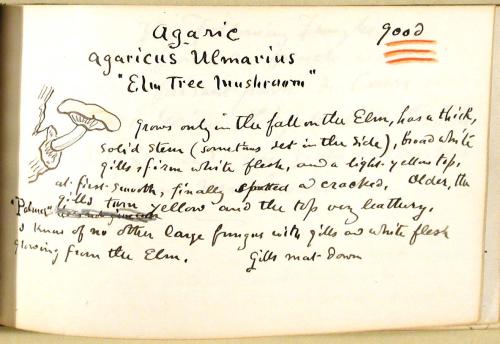 Agaric
good
Agaricus Ulmarius
"Elm Tree Mushroom"
Grows only in the fall on the Elm, has a thick,
solid stem (sometimes set in the side), broad white
gills & firm white flesh, and a light yellow top,
at first smooth, finally spotted or cracked, Older, the
gills turn yellow and the top very leathery.
"Palmer"
I know of no other large fungus with gills and white flesh
growing from the Elm. Gills mat down